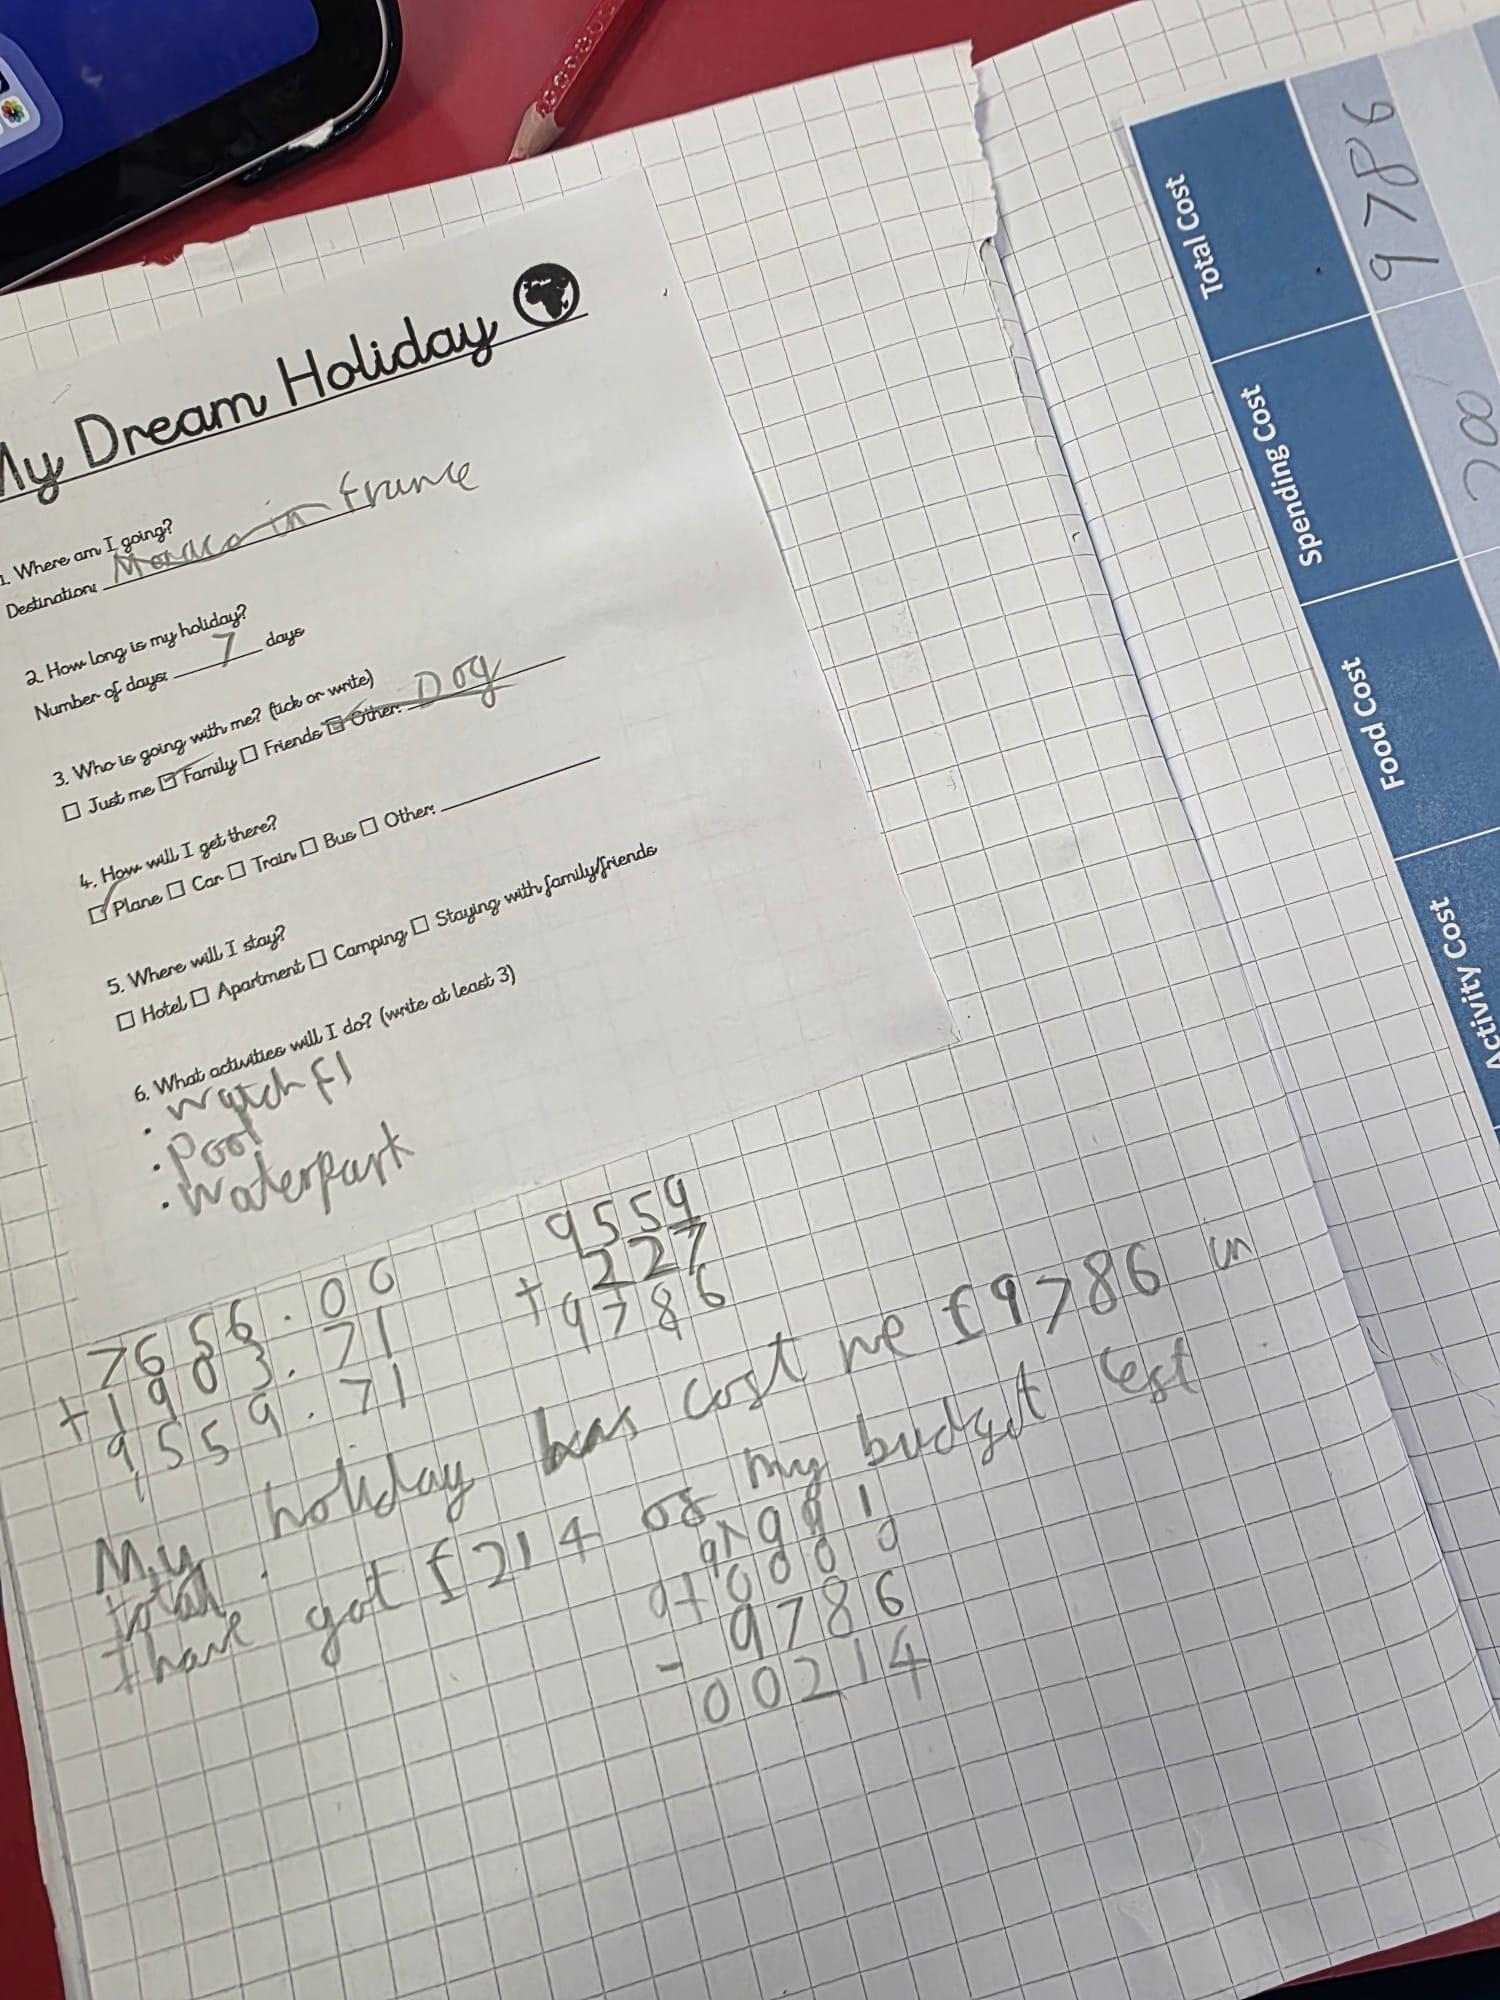 My Dream Holiday
1. Where am I going?
Destination: Monaco in france
2. How long is my holiday?
Number of days: 7 days
3. Who is going with me? (tick or write)
☐ Just me ☑ Family ☐ Friends ☑ Other: Dog
4. How will I get there?
☑ Plane ☐ Car ☐ Train ☐ Bus ☐ Other:
5. Where will I stay?
☐ Hotel ☐ Apartment ☐ Camping ☐ Staying with family/friends
6. What activities will I do? (write at least 3)
• watch f1
• Pool
• waterpark
7656.00
+1903.71
9559.71
1
9559
+ 227
9786
My holiday has cost me £9786 in
total.
I have got £214 of my budget lest
9786
- 00214
Total Cost
9786
Spending Cost
Food Cost
Activity Cost